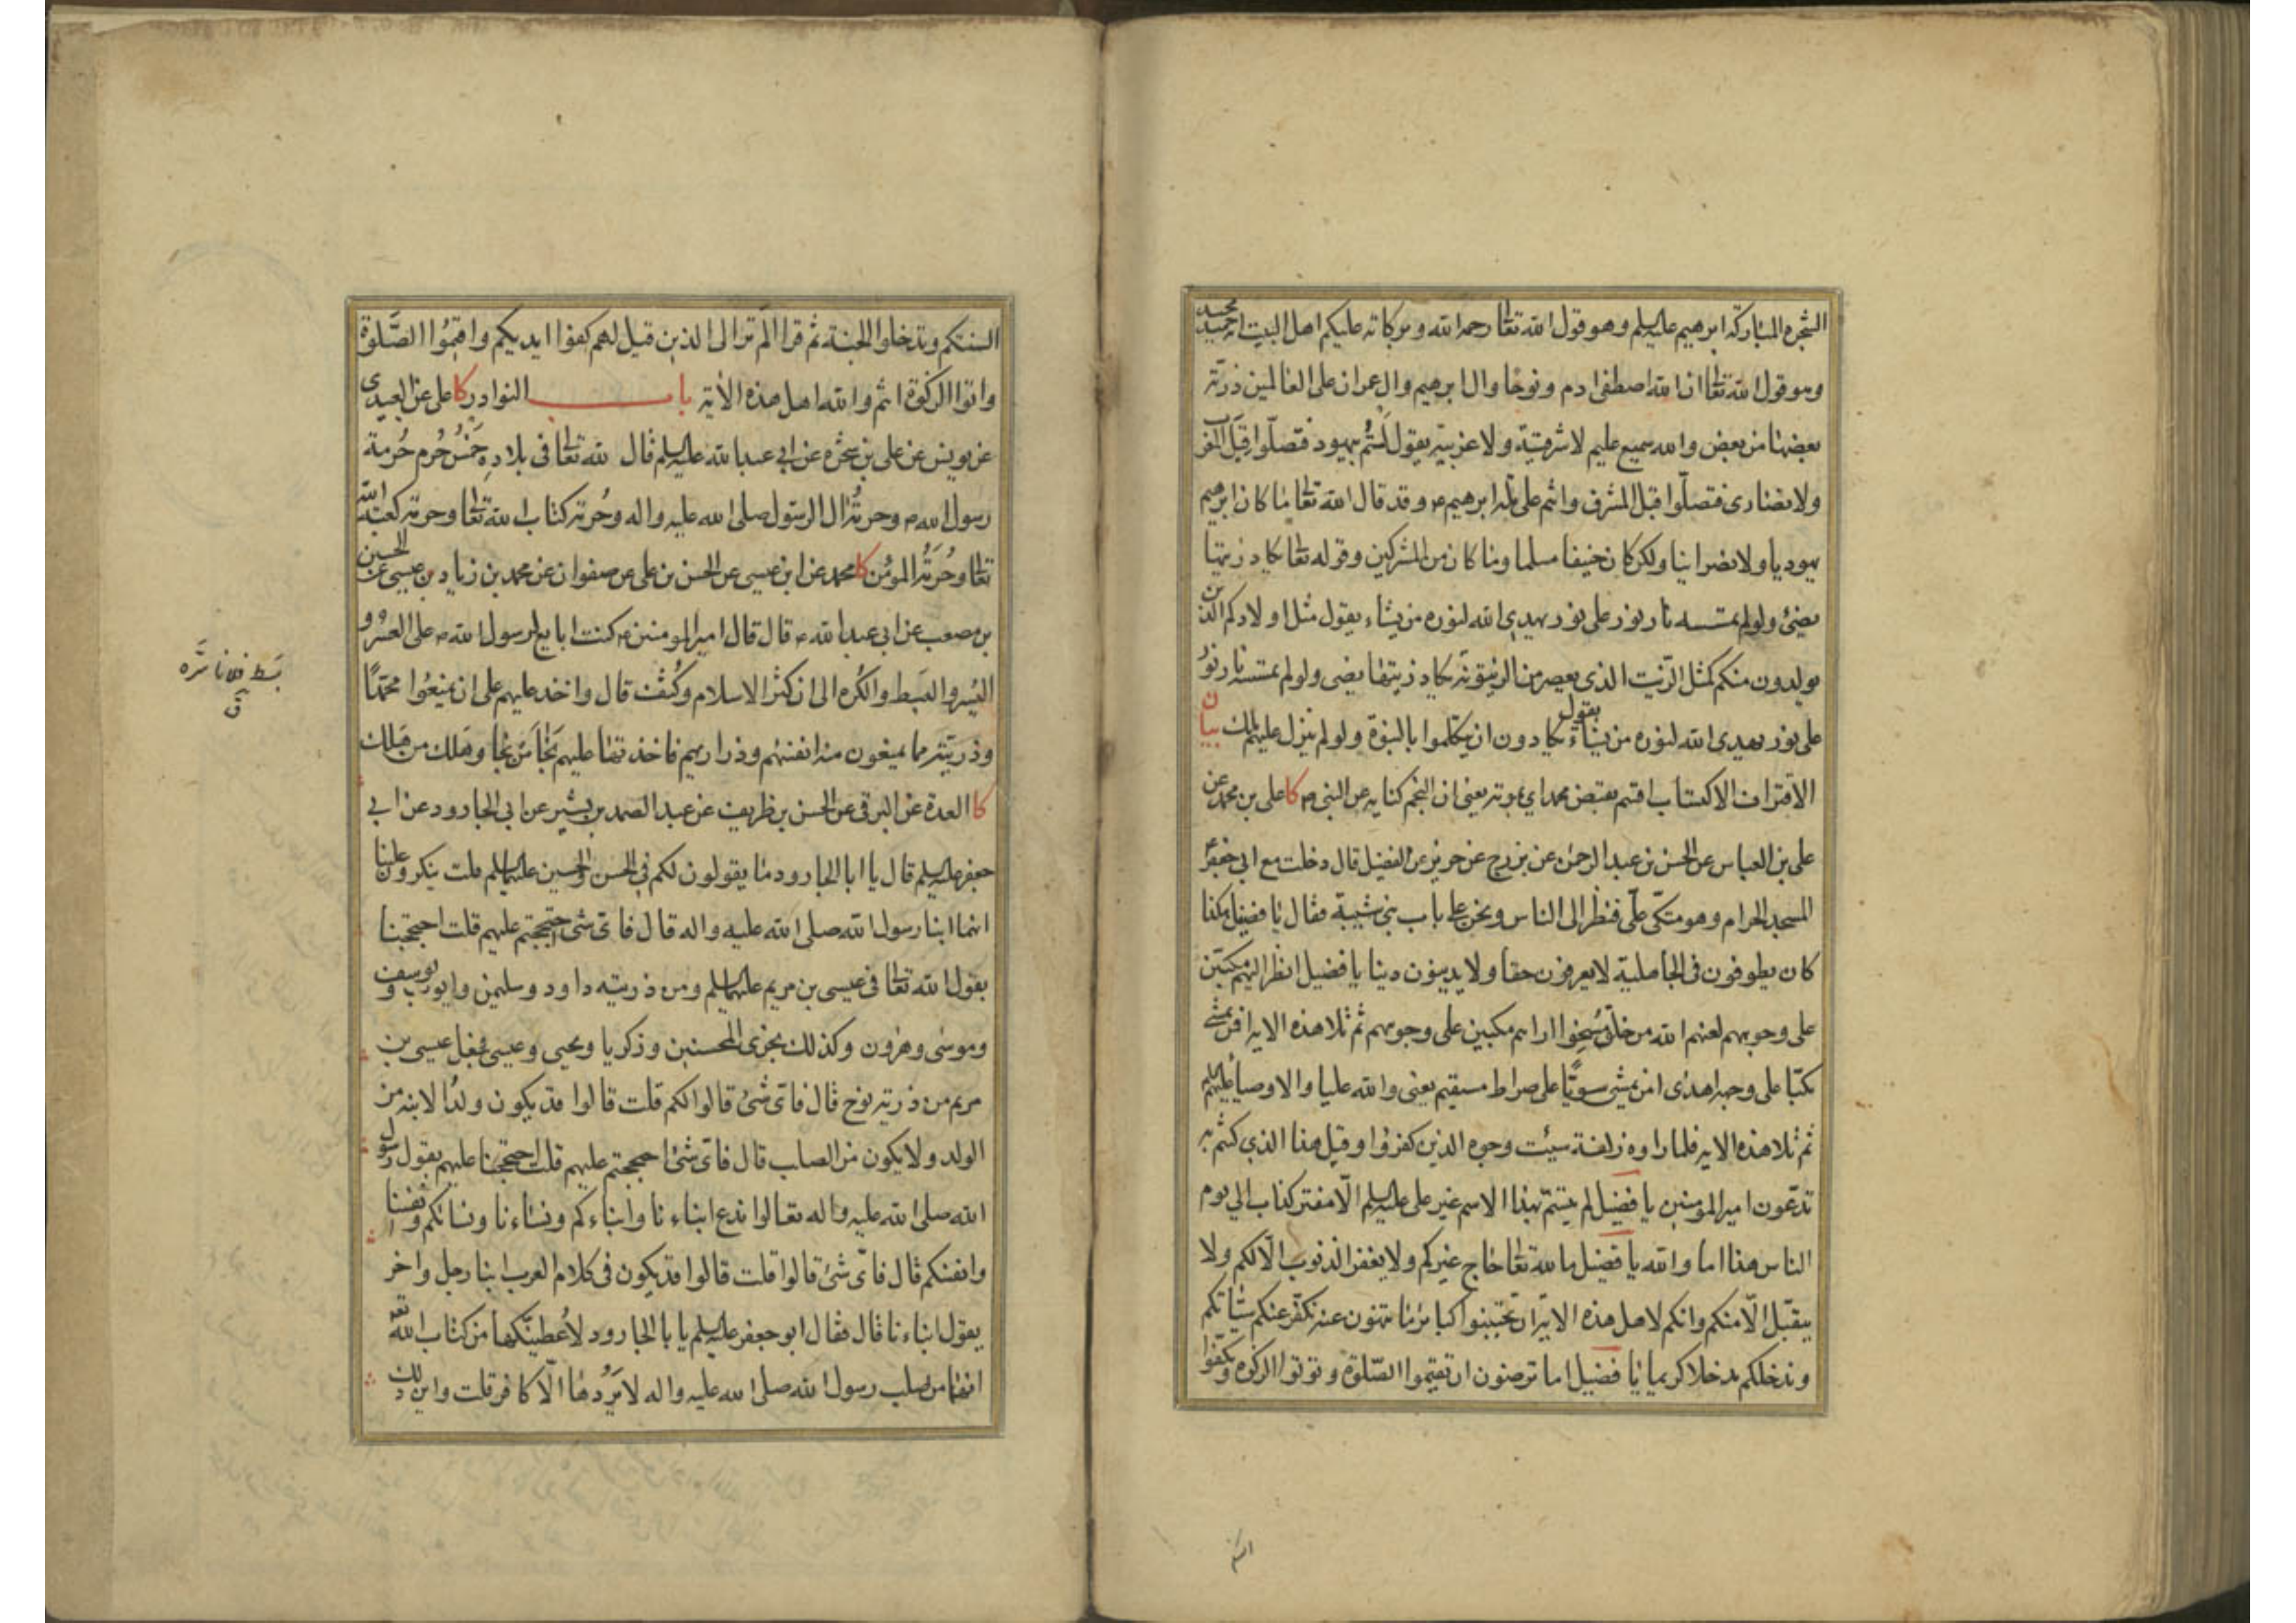 الشجرة المباركة ابرهيم عليه السلم وهو قول الله تعالى رحمة الله وبركاته عليكم اهل البيت انه حميد مجيد
وهو قول الله تعالى ان الله اصطفى ادم ونوحا وال ابرهيم وال عمران على العالمين ذرية
بعضها من بعض والله سميع عليم لا شرقية ولا غربية يقول لستم بيهود فتصلوا قبل المغرب
ولا نصارى فتصلوا قبل المشرق وانتم على ملة ابرهيم ع وقد قال الله تعالى ما كان ابرهيم
يهوديا ولا نصرانيا ولكن كان حنيفا مسلما وما كان من المشركين وقوله تعالى يكاد زيتها
يضئ ولو لم تمسسه نار نور على نور يهدي الله لنوره من يشاء يقول مثل اولادكم الذين
يولدون منكم كمثل الزيت الذي يعصر من الزيتونة يكاد زيتها يضى ولو لم تمسسه نار نور
على نور يهدى الله لنوره من يشاء يقول يكادون ان يتكلموا بالنبوة ولو لم ينزل عليهم ملك بيان
الاقتراف الاكتساب اقسم بقبض محمد اي بموته يعني ان النجم كناية عن النبي ص كا على بن محمد عن
على بن العباس عن الحسن بن عبد الرحمن عن بزرج عن حريز عن الفضيل قال دخلت مع ابي جعفر ع
المسجد الحرام وهو متكئ علىّ فنظر الى الناس ونحن على باب بني شيبة فقال يا فضيل هكذا
كان يطوفون فى الجاهلية لا يعرفون حقا ولا يدينون دينا يا فضيل انظر اليهم مكبين
على وجوههم لعنهم الله من خلق مسخوا اراهم مكبين على وجوههم ثم تلا هذه الاية افمن يمشي
مكبا على وجهه اهدى امن يمشي سويّا على صراط مستقيم يعنى والله عليا والاوصياء عليهم السلم
ثم تلا هذه الاية فلما راوه زلفة سيئت وجوه الذين كفروا وقيل هذا الذي كنتم به
تدعون امير المؤمنين يا فضيل لم يتسم بهذا الاسم غير على عليه السلم الا مفتر كذاب الى يوم
الناس هذا اما والله يا فضيل ما لله تعالى حاج غيركم ولا يغفر الذنوب الا لكم ولا
يتقبل الا منكم وانكم لاهل هذه الاية ان تجتنبوا كبائر ما تنهون عنه نكفر عنكم سيئاتكم
وندخلكم مدخلا كريما يا فضيل اما ترضون ان تقيموا الصلوة وتوتوا الزكوة وتكفوا
السنتكم وتدخلوا الجنة ثم قرا الم تر الى الذين قيل لهم كفوا ايديكم واقيموا الصلوة
واتوا الزكوة انتم والله اهل هذه الاية باب النوادر كا على عن العبيدى
عن يونس عن على بن شجرة عن ابي عبد الله عليه السلم قال لله تعالى فى بلاده خمس حرم حرمة
رسول الله ص وحرمة ال الرسول صلى الله عليه واله وحرمة كتاب الله تعالى وحرمة كعبة الله
تعالى وحرمة المؤمن كا محمد عن ابن عيسى عن الحسن بن على عن صفوان عن محمد بن زياد بن عيسى عن الحسين
بن مصعب عن ابي عبد الله ع قال قال امير المومنين ع كنت ابايع لرسول الله ص على العسر و
اليسر والبسط والكره الى ان كثر الاسلام وكثف قال واخذ عليهم على ان يمنعوا محمدًا
وذريته مما يمنعون منه انفسهم وذراريهم فاخذتها عليهم نجا من نجا وهلك من هلك
كا العدة عن البرقى عن الحسن بن ظريف عن عبد الصمد بن بشير عن ابي الجارود عن ابي
جعفر عليه السلم قال يا ابا الجارود ما يقولون لكم في الحسن والحسين عليهما السلم قلت ينكرون علينا
انهما ابنا رسول الله صلى الله عليه واله قال فاى شئ احتججتم عليهم قلت احتججنا
بقول الله تعالى فى عيسى بن مريم عليهما السلم ومن ذريته داود وسليمن وايوب ويوسف
وموسى وهرون وكذلك نجزى المحسنين وزكريا ويحيى وعيسى فجعل عيسى بن
مريم من ذرية نوح قال فاى شئ قالوا لكم قلت قالوا قد يكون ولد الابنة من
الولد ولا يكون من الصلب قال فاى شئ احتججتم عليهم قلت احتججنا عليهم بقول رسول
الله صلى الله عليه واله تعالوا ندع ابناءنا وابناءكم ونساءنا ونسائكم وانفسنا
وانفسكم قال فاى شئ قالوا قلت قالوا قد يكون فى كلام العرب ابنا رجل واخر
يقول ابناءنا قال فقال ابو جعفر عليه السلم يا با الجارود لاعطينكها من كتاب الله تع
انهما من صلب رسول الله صلى الله عليه واله لا يردها الا كافر قلت واين ذلك
بسط فلانا سره
ق
السنتكم